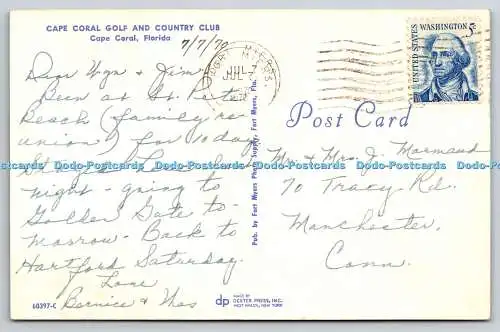 CAPE CORAL GOLF AND COUNTRY CLUB
Cape Coral, Florida
7/7/70
Dear & Jim,
Been at St. Pete
Beach (family re-
union) for 10 days
night - going to
Golden Gate to-
morrow - Back to
Hartford Saturday.
Love
Bernice &
60397-C
Pub. by Fort Myers Photo Supply, Fort Myers, Fla.
MADE BY
dp DEXTER PRESS, INC.
WEST NYACK, NEW YORK
UNITED STATES
WASHINGTON 5c
Post Card
Mr. & Mrs. J.
70 Tracy Rd.
Manchester,
Conn.
Dodo-Postcards Dodo-Postcards Dodo-Postcards Dodo-Postcards Dodo-Postcards